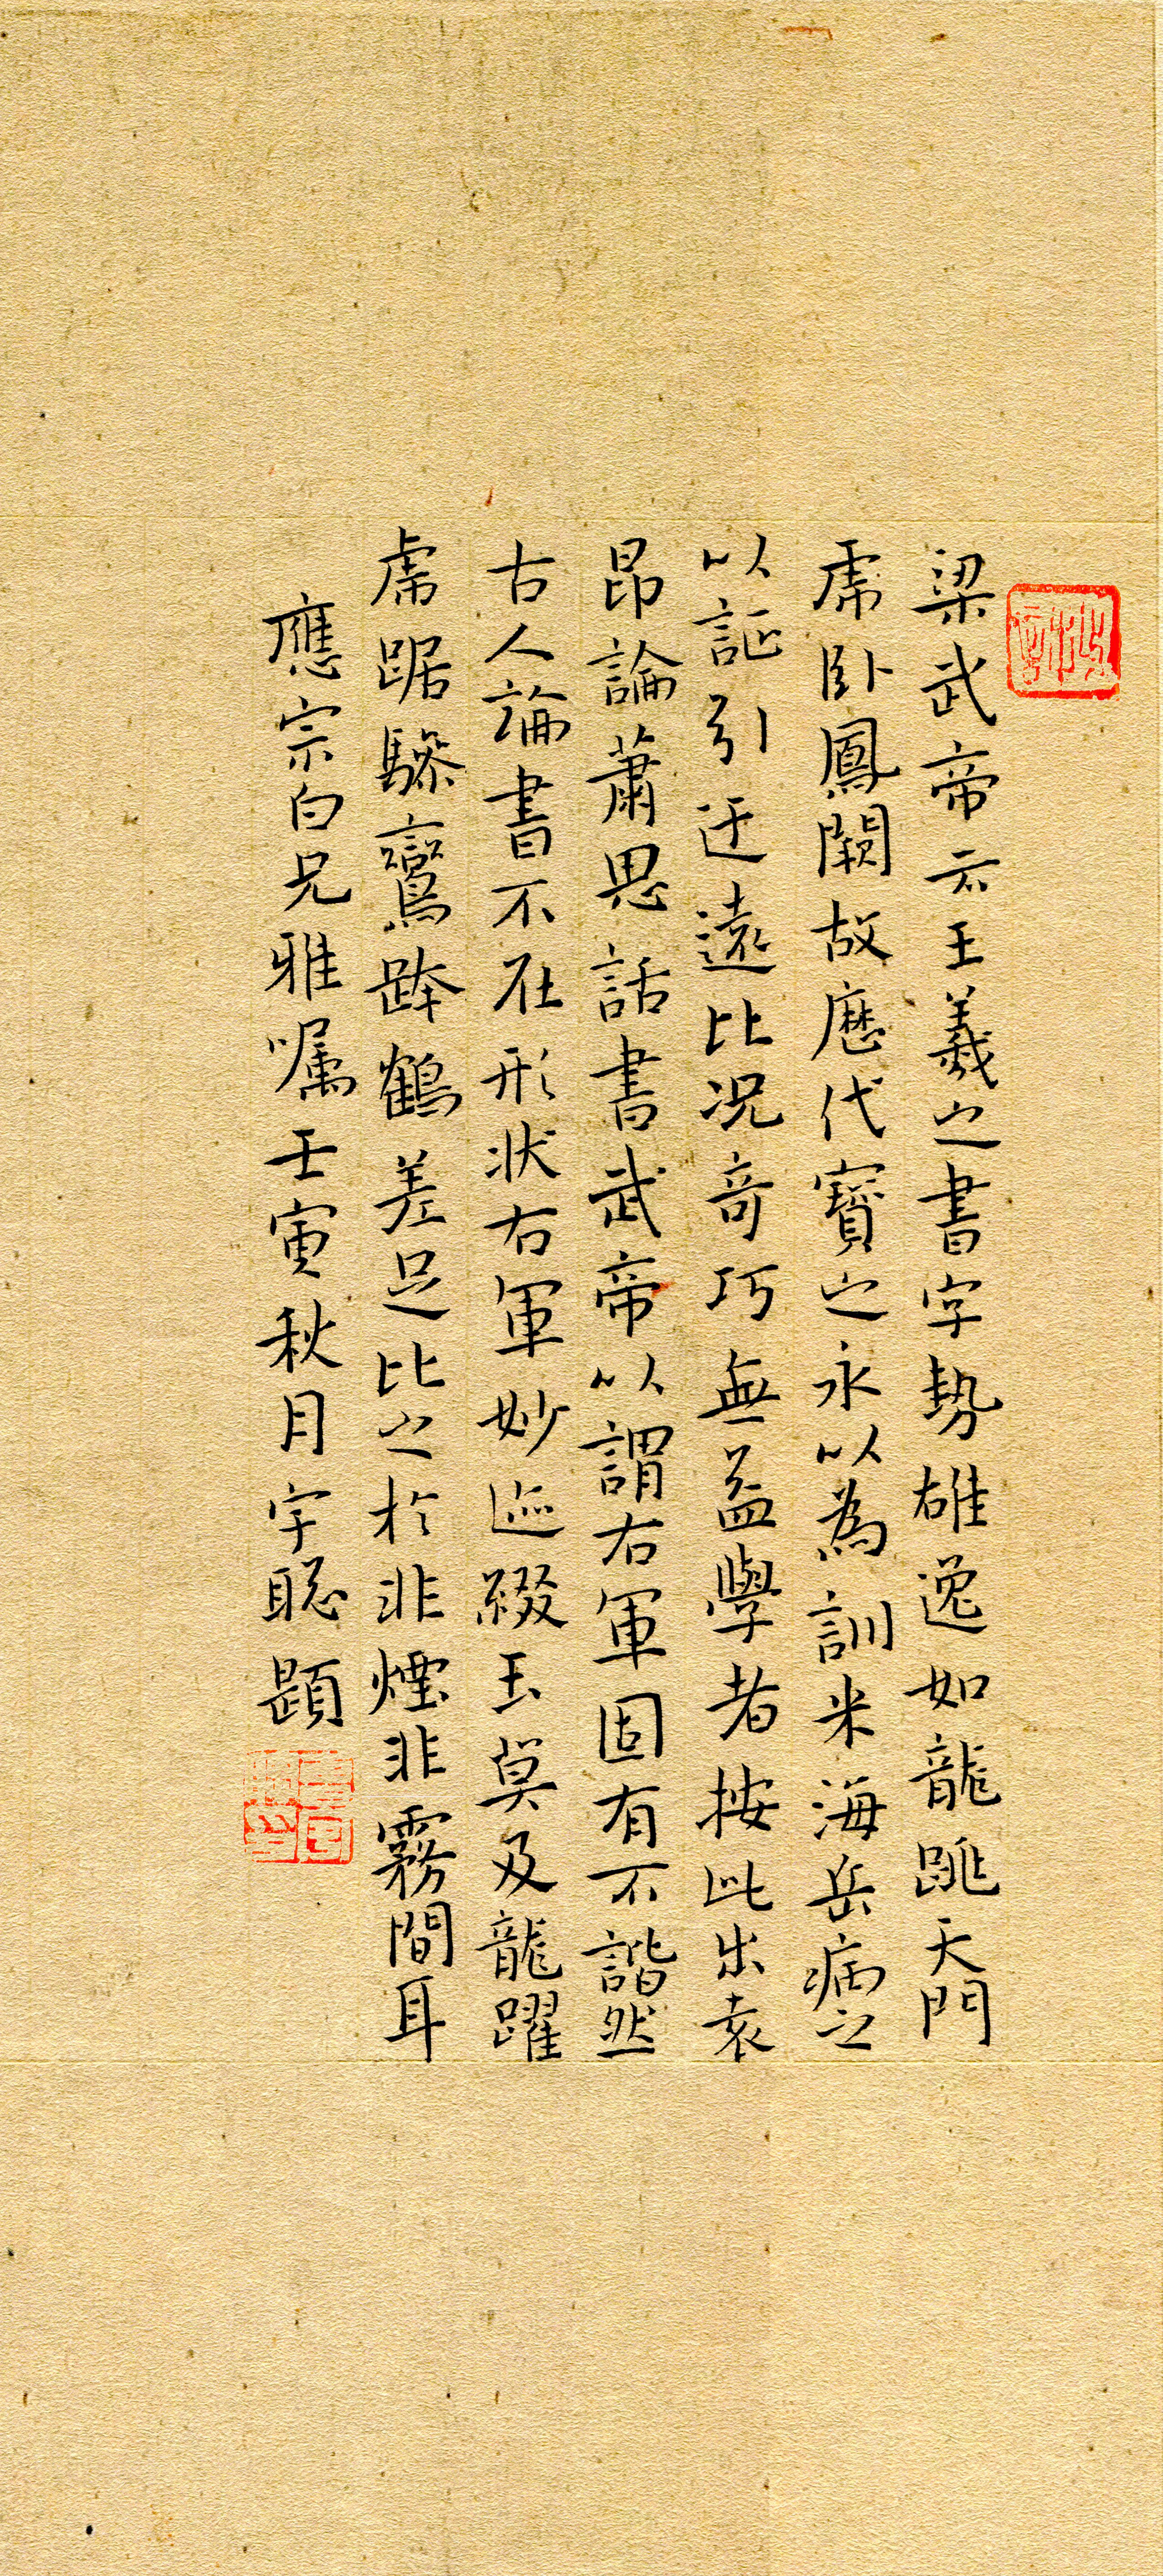 梁武帝云王羲之書字勢雄逸如龍跳天門
虎卧鳳闕故歷代寶之永以為訓米海岳病之
以謂引迂遠比況奇巧無益學者按此出袁
昂論蕭思話書武帝以謂右軍固有不諧然
古人論書不在形狀右軍妙迹綴玉莫及龍躍
虎踞驂鸞跨鶴差足比之於非煙非霧間耳
應宗白兄雅嘱壬寅秋月字聪題